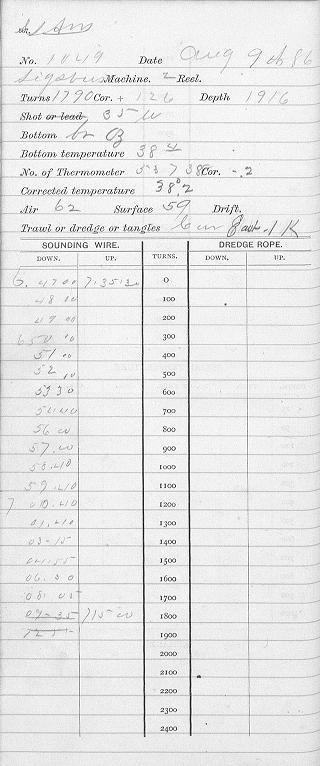 No. 1049 Date Aug 9th 86
Sigsbee Machine. 2 Reel.
Turns 1790 Cor. + 126 Depth 1916
Shot or lead 35 lb
Bottom br
Bottom temperature 38.4
No. of Thermometer 53738 Cor. -.2
Corrected temperature 38°.2
Air 62 Surface 59 Drift.
Trawl or dredge or tangles
SOUNDING WIRE. DREDGE ROPE.
DOWN. UP. TURNS. DOWN. UP.
6. 47 00 7.35 30 0
48 00 100
49 00 200
6 50 00 300
51 00 400
52 00 500
53 30 600
54 40 700
56 00 800
57.00 900
58.40 1000
59.40 1100
7 00.40 1200
01.40 1300
03-15 1400
04.55 1500
06.30 1600
08 05 1700
09-35 7 15 00 1800
1900
2000
2100
2200
2300
2400